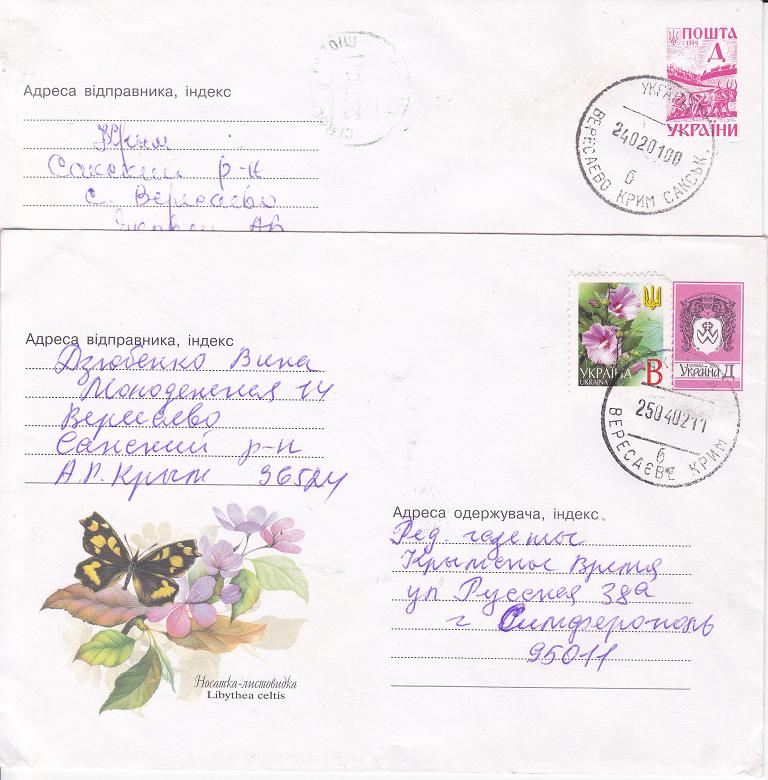 ПОШТА
Д
УКРАЇНИ
Адреса відправника, індекс
Крим
Сакский р-н
с. Вересаево
ВЕРЕСАЕВО КРИМ САКСЬК.
24020100
б
УКРАЇНА
UKRAINA
В
Україна Д
ВЕРЕСАЄВЕ КРИМ
25040211
б
Адреса відправника, індекс
Дзюбенко
Молодежная 14
Вересаево
Сакский р-н
А.Р. Крым 96524
Адреса одержувача, індекс
Ред. газеты
Крымское Время
ул Русская 38а
г Симферополь
95011
Носатка-листовидка
Libythea celtis